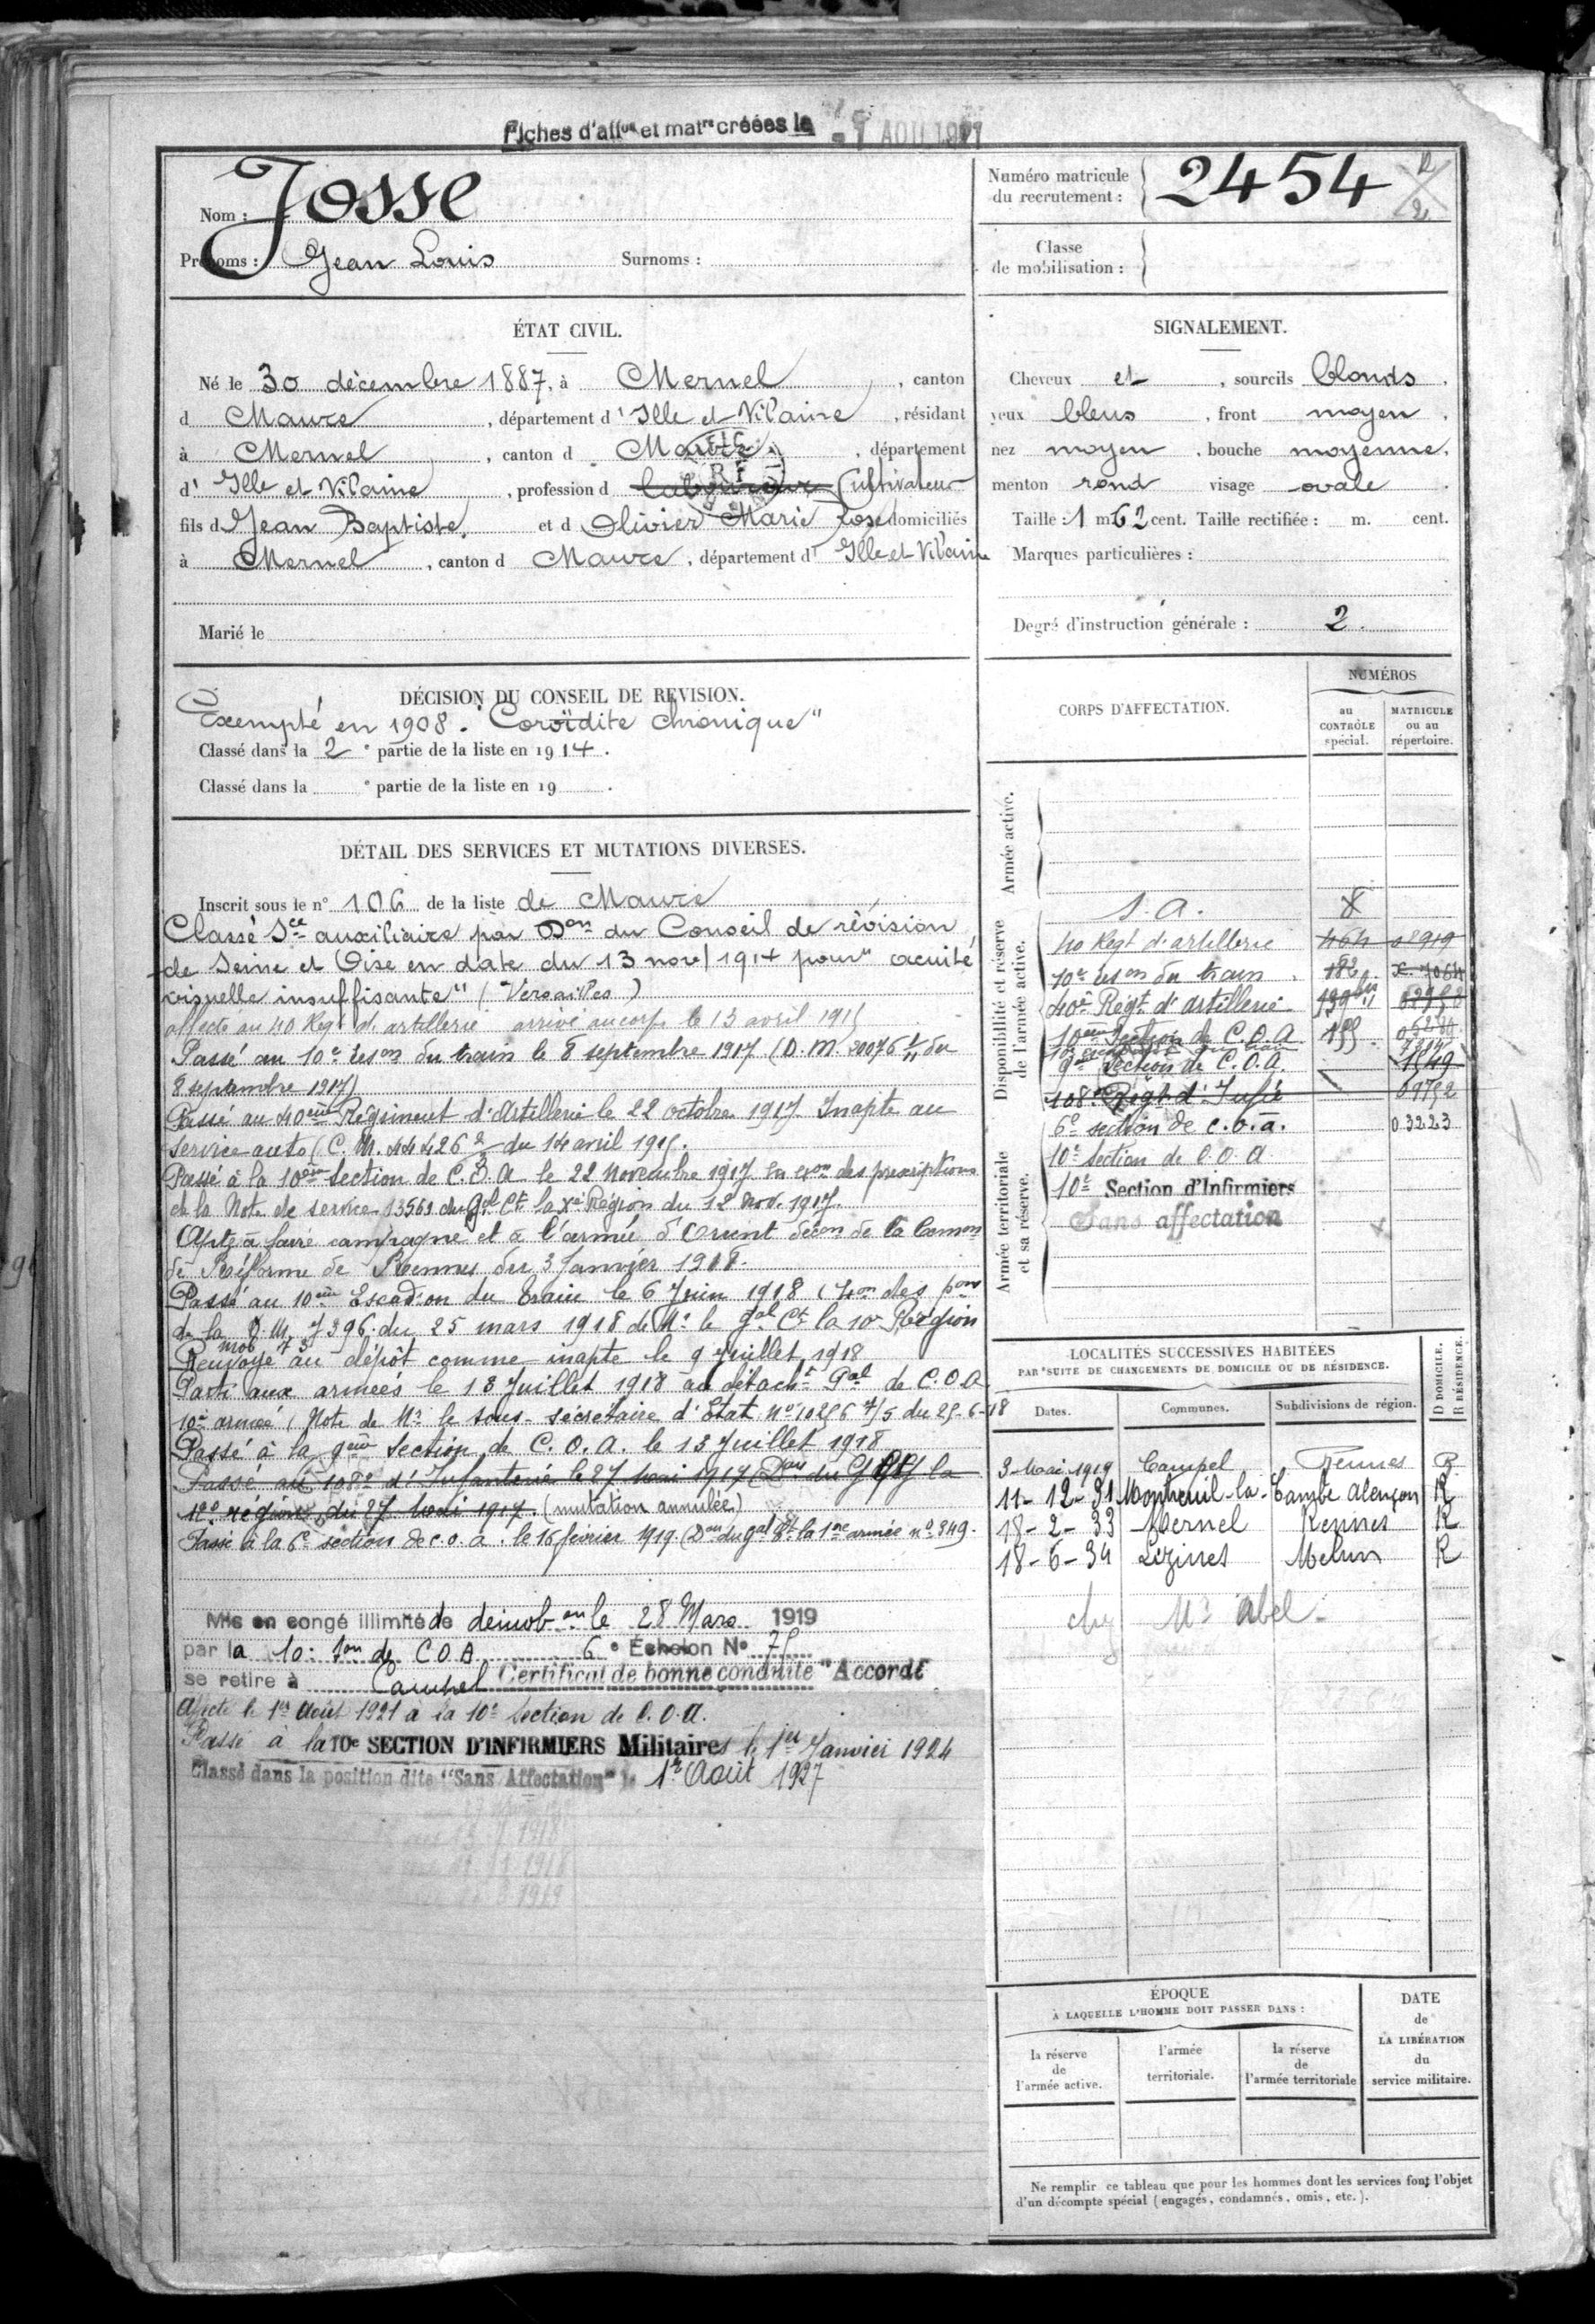 Fiches d'aff^on et mat^re créées le - 1 AOU 1921
Nom : Josse
Prénoms : Jean Louis Surnoms :
Numéro matricule
du recrutement : 2454
Classe
de mobilisation :
ÉTAT CIVIL.
Né le 30 décembre 1887, à Mernel, canton
d Maure, département d'Ille et Vilaine, résidant
à Mernel, canton d Maure, département
d' Ille et Vilaine, profession d laboureur Cultivateur
fils d Jean Baptiste, et d Olivier Marie Rose domiciliés
à Mernel, canton d Maure, département d' Ille et Vilaine
Marié le
SIGNALEMENT.
Cheveux et, sourcils blonds.
yeux bleus, front moyen,
nez moyen, bouche moyenne,
menton rond visage ovale.
Taille : 1 m 62 cent. Taille rectifiée : m. cent.
Marques particulières :
Degré d'instruction générale : 2.
DÉCISION DU CONSEIL DE REVISION.
Exempté en 1908. "Coroïdite chronique"
Classé dans la 2e partie de la liste en 1914.
Classé dans la e partie de la liste en 19 .
DÉTAIL DES SERVICES ET MUTATIONS DIVERSES.
Inscrit sous le n° 106 de la liste de Maure
Classé Sce auxiliaire par Don du Conseil de révision
de Seine et Oise en date du 13 nove 1914 pour "acuité
visuelle insuffisante" (Versailles)
affecté au 40 Regt d'artillerie arrivé au corps le 13 avril 1915
Passé au 10e Eson du train le 8 septembre 1917 (D.M. 20076 1/11 du
8 septembre 1917)
Passé au 40ème Régiment d'Artillerie le 22 octobre 1917. Inapte au
service auto (C.M. du 14 avril 1915.
Passé à la 10ème Section de C.O.A le 22 Novembre 1917 en exon des prescriptions
de la Note de service 13561 du Gal Ct la Xe Région du 12 Nov. 1917.
Apte à faire campagne et à l'armée d'Orient décon de la Comon
de Réforme de Rennes du 3 Janvier 1918.
Passé au 10ème Escadron du Train le 6 Juin 1918 (Exon des pons
de la D.M. 7396 du 25 mars 1918 de Mr le Gal Ct la 10e Région
Renvoyé au dépôt comme inapte le 9 Juillet 1918
Parti aux armées le 13 Juillet 1918 au détacht Pal de C.O.A
10e armée (Note de Mr le sous-secrétaire d'Etat No 10256 7/5 du 25-6-18
Passé à la 9ème Section de C.O.A. le 13 Juillet 1918
Passé au 108e d'Infanterie le 27 Mai 1917 (Don du la
12e région du 27 Mai 1917. (mutation annulée)
Passé à la 6e section de c.o.a. le 16 février 1919. (Don du gal Ct la 1re armée no 849.
Mis en congé illimité de démob on le 28 Mars 1919
par la 10e Son de C.O.A 6e Échelon No 75
se retire à Campel Certificat de bonne conduite "Accordé"
Affecté le 1er Août 1921 à la 10e Section de C.O.A.
Passé à la 10e SECTION D'INFIRMIERS Militaires le 1er Janvier 1924
Classé dans la position dite "Sans Affectation" le 1er Août 1927
CORPS D'AFFECTATION.
NUMÉROS
au
CONTRÔLE
spécial.
MATRICULE
ou au
répertoire.
Armée active.
Disponibilité et réserve
de l'armée active.
S.A.
40 Regt d'artillerie 464 08919
10e Eson du train. 182.
40e Régt d'artillerie
10eme Section de C.O.A 155
9e Section de C.O.A. 1849
108e Régt d'Infie
6e section de c.o.a. 03223
Armée territoriale
et sa réserve.
10e Section de C.O.A
10e Section d'Infirmiers
Sans affectation
LOCALITÉS SUCCESSIVES HABITÉES
PAR SUITE DE CHANGEMENTS DE DOMICILE OU DE RÉSIDENCE.
Dates. Communes. Subdivisions de région. D DOMICILE. R RÉSIDENCE.
3 Mai 1919 Campel Rennes R.
11-12-31 Montreuil-la-Cambe Alençon R
18-2-33 Mernel Rennes R
18-6-34 Lizines Melun R
chez Mr Abel
ÉPOQUE
À LAQUELLE L'HOMME DOIT PASSER DANS :
la réserve
de
l'armée active.
l'armée
territoriale.
la réserve
de
l'armée territoriale
DATE
de
LA LIBÉRATION
du
service militaire.
Ne remplir ce tableau que pour les hommes dont les services font l'objet
d'un décompte spécial (engagés, condamnés, omis, etc.).